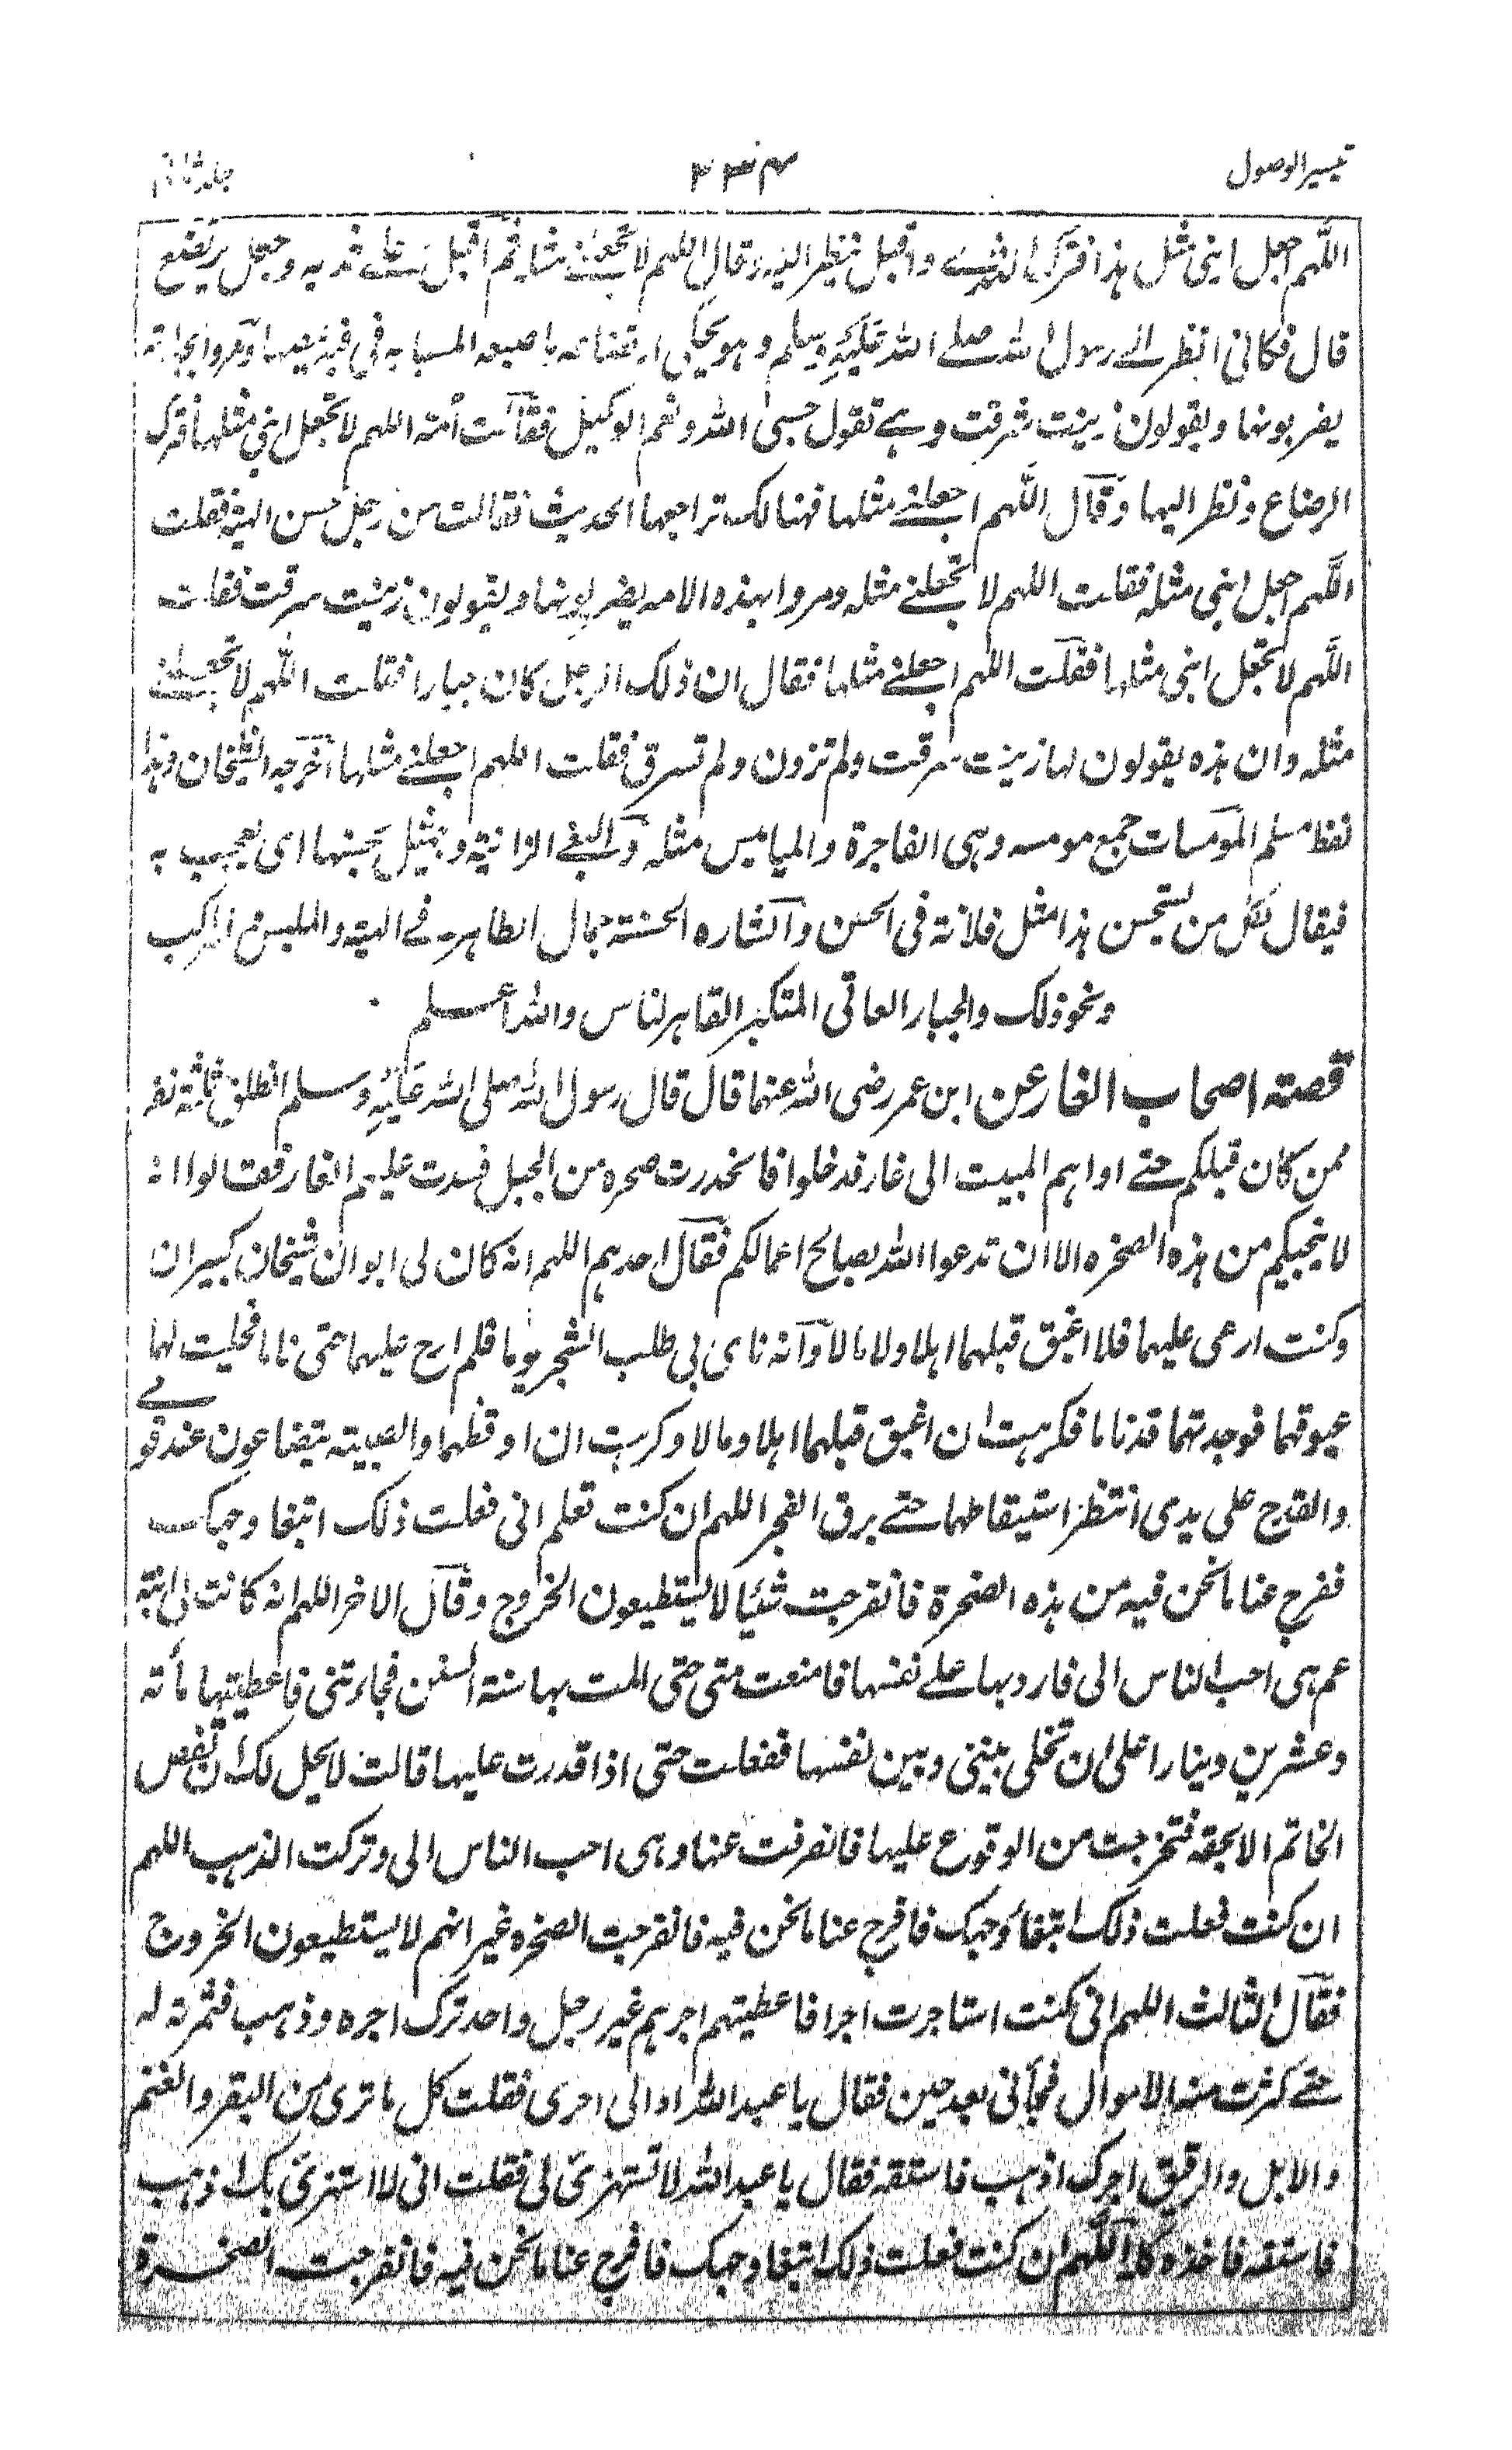 تيسير الوصول ٣٣٤ جلد ثاني
اللهم اجعل ابني مثل هذا فترك الثدي واقبل فنظر اليه وقال اللهم لا تجعلني مثله ثم اقبل على ثديه وجعل يرتضع
قال فكاني انظر الى رسول الله صلى الله عليه وسلم وهو يحكي ارتضاعه باصبعه السبابه في فيه يمصها ومروا بجاريه
يضربونها ويقولون زنيت سرقت وهي تقول حسبي الله ونعم الوكيل فقالت امه اللهم لا تجعل ابني مثلها فترك
الرضاع ونظر اليها وقال اللهم اجعلني مثلها فهنالك تراجعها الحديث فقالت مر رجل حسن الهيئة فقلت
اللهم اجعل ابني مثله فقلت اللهم لا تجعلني مثله ومروا بهذه الامه يضربونها ويقولون زنيت سرقت فقلت
اللهم لا تجعل ابني مثلها فقلت اللهم اجعلني مثلها فقال ان ذلك الرجل كان جبارا فقلت اللهم لا تجعلني
مثله وان هذه يقولون لها زنيت سرقت ولم تزن ولم تسرق فقلت اللهم اجعلني مثلها اخرجه الشيخان وهذا
لفظ مسلم المومسات جمع مومسه وهي الفاجرة والمياميس مثله والبغي الزانية ويتمثل بحسنها اى يعجب به
فيقال لكل من يستحسن هذا مثل فلانة في الحسن والشاره الحسنة جمال الظاهر في الهيئة والملبس والمركب
ونحو ذلك والجبار العاتي المتكبر القاهر للناس والله اعلم
قصة اصحاب الغار عن ابن عمر رضى الله عنهما قال قال رسول الله صلى الله عليه وسلم انطلق ثلثة نفر
ممن كان قبلكم حتى اواهم المبيت الى غار فدخلوا فانحدرت صخره من الجبل فسدت عليهم الغار فقالوا انه
لا ينجيكم من هذه الصخره الا ان تدعوا الله بصالح اعمالكم فقال احدهم اللهم انه كان لى ابوان شيخان كبيران
وكنت ارعى عليهما فلا اغبق قبلهما اهلا ولا مالا وانه ناى بي طلب الشجر يوما فلم ارح عليهما حتى ناما فحلبت لهما
غبوقهما فوجدتهما قد ناما فكرهت ان اغبق قبلهما اهلا ومالا وكرهت ان اوقظهما والصبية يتضاغون عند قدمي
والقدح على يدى انتظر استيقاظهما حتى برق الفجر اللهم ان كنت تعلم انى فعلت ذلك ابتغا وجهك
ففرج عنا ما نحن فيه من هذه الصخرة فانفرجت شئيا لا يستطيعون الخروج وقال الاخر اللهم انه كانت لى ابنة
عم هى احب الناس الى فاردتها على نفسها فامتنعت منى حتى المت بها سنة من السنين فجاءتنى فاعطيتها مأئة
وعشرين دينارا على ان تخلى بينى وبين نفسها ففعلت حتى اذا قدرت عليها قالت لا يحل لك ان تفض
الخاتم الا بحقه فتحرجت من الوقوع عليها فانصرفت عنها وهى احب الناس الى وتركت الذهب اللهم
ان كنت فعلت ذلك ابتغاء وجهك فافرج عنا ما نحن فيه فانفرجت الصخره غير انهم لا يستطيعون الخروج
فقال الثالث اللهم انى كنت استاجرت اجرا فاعطيتهم اجرهم غير رجل واحد ترك اجره وذهب فثمرته له
حتى كثرت منه الاموال فجأنى بعد حين فقال يا عبد الله اد الى اجرى فقلت كل ما ترى من البقر والغنم
والابل والرقيق اجرك اذهب فاستقه فقال يا عبد الله لا تستهزئ لى فقلت انى لا استهزئ بك اذهب
فاستقه فاخذه كله اللهم ان كنت فعلت ذلك ابتغا وجهك فافرج عنا ما نحن فيه فانفرجت الصخرة